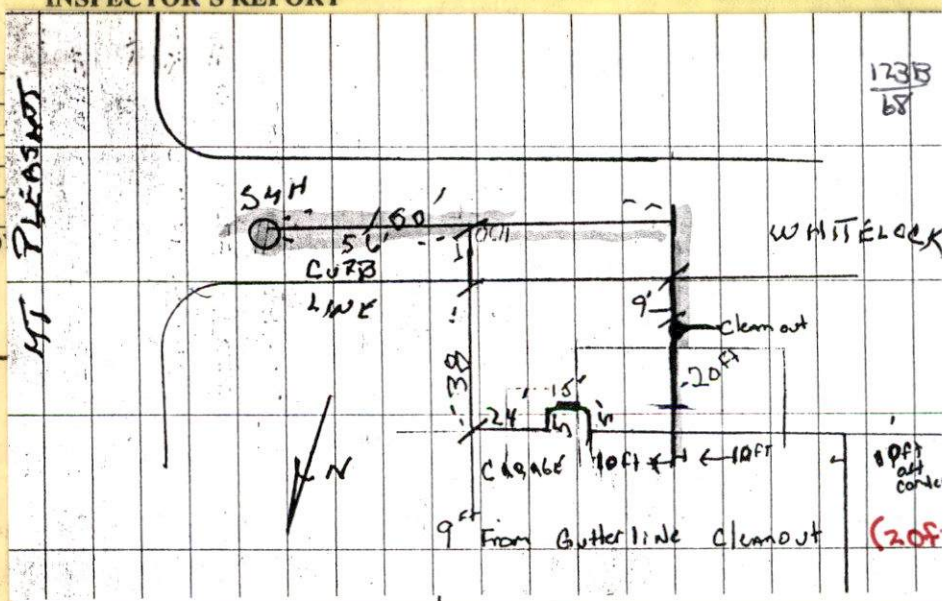 INSPECTOR'S REPORT
123B
68
MT PLEASANT
SMH
60'
56'
CURB
LINE
WHITELOCK
9'
Cleanout
38
20ft
15'
24'
GARAGE
10ft
10ft
10ft
off
N
9ft From Gutterline Cleanout
(20f